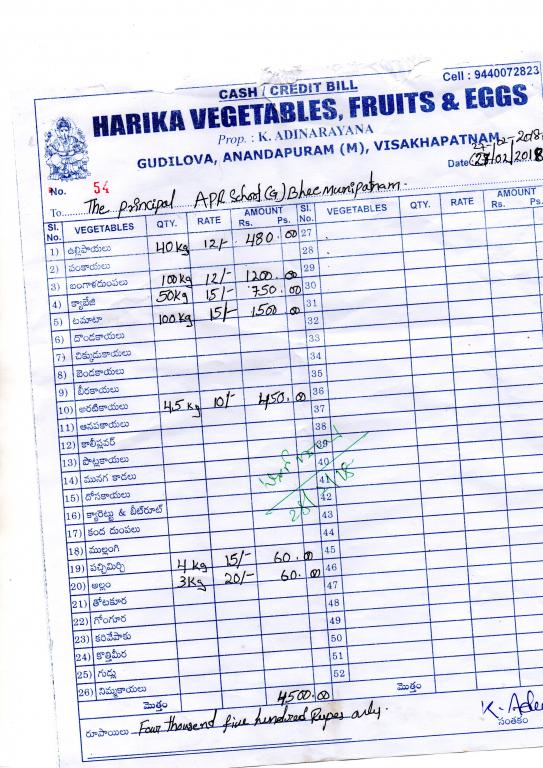 Cell : 9440072823
CASH / CREDIT BILL
HARIKA VEGETABLES, FRUITS & EGGS
Prop. : K. ADINARAYANA
GUDILOVA, ANANDAPURAM (M), VISAKHAPATNAM
27-02-2018
No. 54
Date 27/02/2018
To The principal APR School (G) Bheemunipatnam.
Sl. No. VEGETABLES QTY. RATE AMOUNT Rs. Ps. Sl. No. VEGETABLES QTY. RATE AMOUNT Rs. Ps.
1) ఉల్లిపాయలు 40 kg 12/- 480.00 27
2) వంకాయలు 28
3) బంగాళదుంపలు 100 kg 12/- 1200.00 29
4) క్యాబేజి 50 kg 15/- 750.00 30
5) టమాటా 100 kg 15/- 1500 00 31
6) దొండకాయలు 32
7) చిక్కుడుకాయలు 33
8) బెండకాయలు 34
9) బీరకాయలు 35
10) అరటికాయలు 45 kg 10/- 450.00 36
11) ఆనపకాయలు 37
12) కాలీఫ్లవర్ 38
13) పొట్లకాయలు 39
14) మునగ కాడలు 40
15) దోసకాయలు 41
16) క్యారెట్టు & బీట్‌రూట్ 42
17) కంద దుంపలు 43
18) ముల్లంగి 44
19) పచ్చిమిర్చి 4 kg 15/- 60.00 45
20) అల్లం 3 kg 20/- 60.00 46
21) తోటకూర 47
22) గోంగూర 48
23) కరివేపాకు 49
24) కొత్తిమీర 50
25) గుడ్లు 51
26) నిమ్మకాయలు 52
మొత్తం 4500.00 మొత్తం
రూపాయిలు Four thousand five hundred Rupes only.
సంతకం